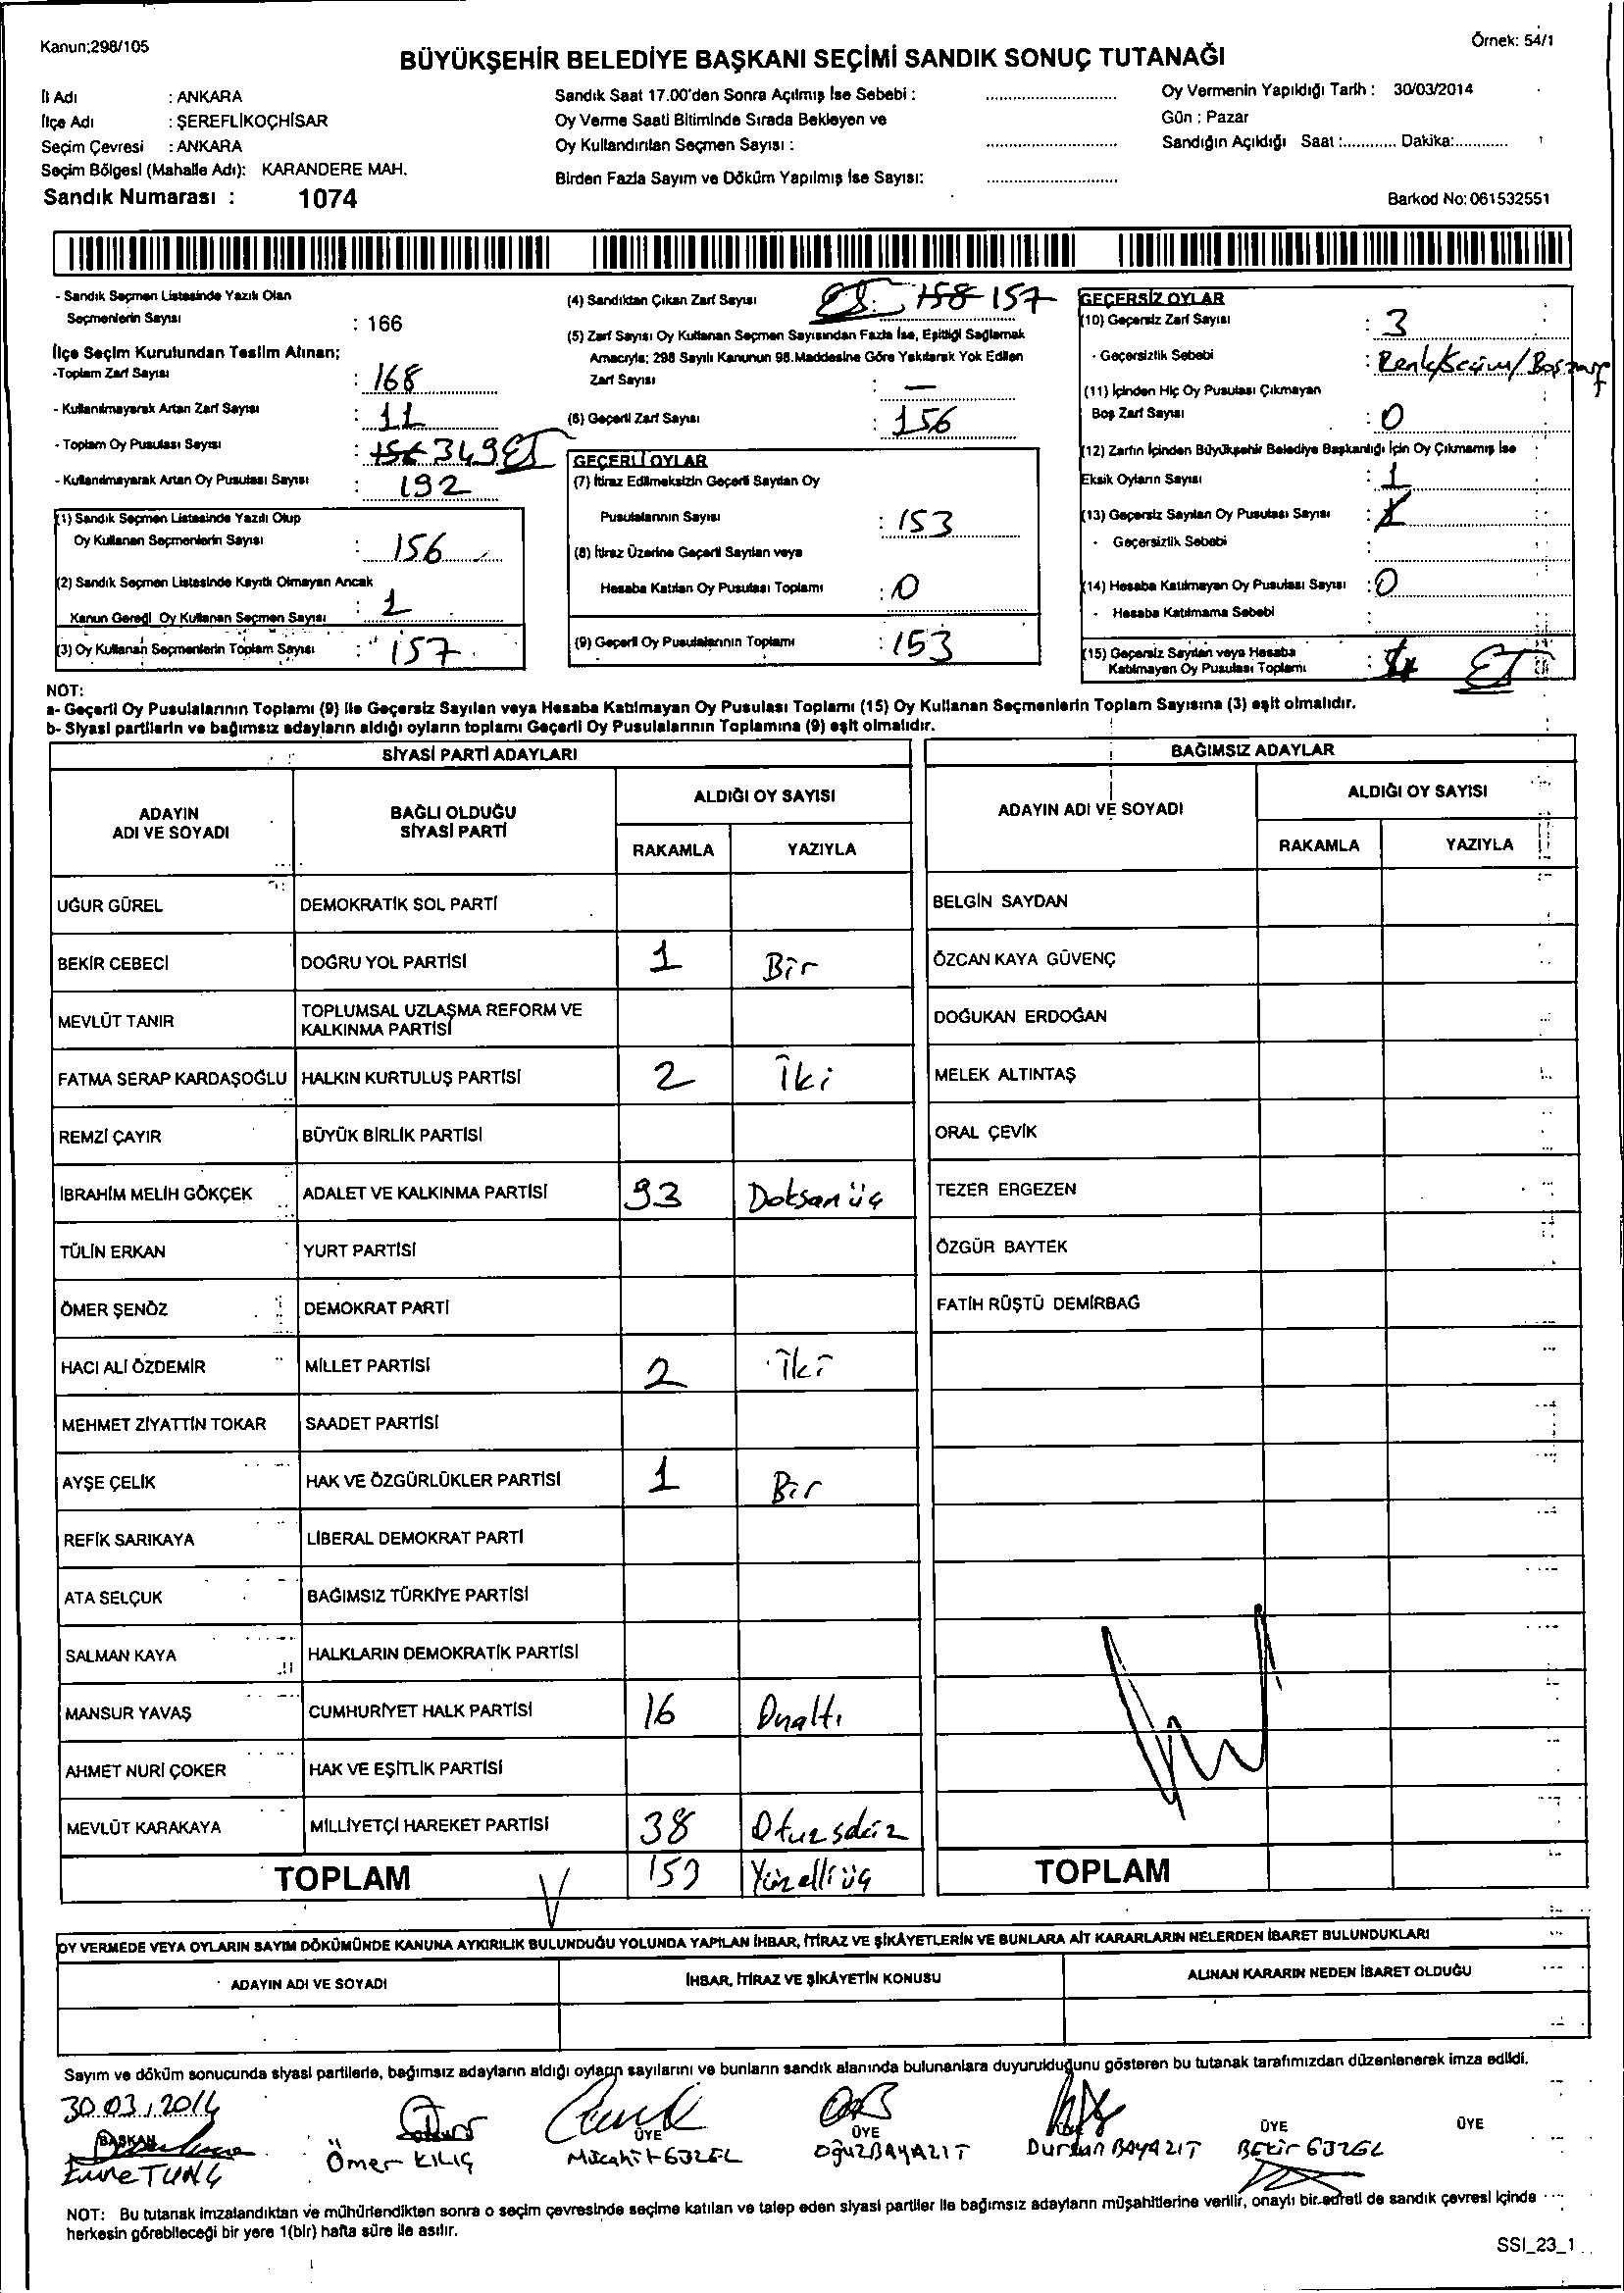 Kanun:298/105
Örnek: 54/1
BÜYÜKŞEHİR BELEDİYE BAŞKANI SEÇİMİ SANDIK SONUÇ TUTANAĞI
İl Adı : ANKARA
İlçe Adı : ŞEREFLİKOÇHİSAR
Seçim Çevresi : ANKARA
Seçim Bölgesi (Mahalle Adı): KARANDERE MAH.
Sandık Numarası : 1074
Sandık Saat 17.00'den Sonra Açılmış İse Sebebi :
Oy Verme Saati Bitiminde Sırada Bekleyen ve
Oy Kullandırılan Seçmen Sayısı :
Birden Fazla Sayım ve Döküm Yapılmış İse Sayısı:
Oy Vermenin Yapıldığı Tarih : 30/03/2014
Gün : Pazar
Sandığın Açıldığı Saat :............ Dakika:............
Barkod No: 061532551
- Sandık Seçmen Listesinde Yazılı Olan
Seçmenlerin Sayısı : 166
İlçe Seçim Kurulundan Teslim Alınan;
-Toplam Zarf Sayısı : 168
- Kullanılmayarak Artan Zarf Sayısı : 11
- Toplam Oy Pusulası Sayısı : 156 349
- Kullanılmayarak Artan Oy Pusulası Sayısı : 192
(1) Sandık Seçmen Listesinde Yazılı Olup
Oy Kullanan Seçmenlerin Sayısı : 156
(2) Sandık Seçmen Listesinde Kayıtlı Olmayan Ancak
Kanun Gereği Oy Kullanan Seçmen Sayısı : 1
(3) Oy Kullanan Seçmenlerin Toplam Sayısı : 157
(4) Sandıktan Çıkan Zarf Sayısı : 158 157
(5) Zarf Sayısı Oy Kullanan Seçmen Sayısından Fazla İse, Eşitliği Sağlamak
Amacıyla; 298 Sayılı Kanunun 98.Maddesine Göre Yakılarak Yok Edilen
Zarf Sayısı : —
(6) Geçerli Zarf Sayısı : 156
GEÇERLİ OYLAR
(7) İtiraz Edilmeksizin Geçerli Sayılan Oy
Pusulalarının Sayısı : 153
(8) İtiraz Üzerine Geçerli Sayılan veya
Hesaba Katılan Oy Pusulası Toplamı : 0
(9) Geçerli Oy Pusulalarının Toplamı : 153
GEÇERSİZ OYLAR
(10) Geçersiz Zarf Sayısı : 3
- Geçersizlik Sebebi : Renk/Seçim/Boş zarf
(11) İçinden Hiç Oy Pusulası Çıkmayan
Boş Zarf Sayısı : 0
(12) Zarfın İçinden Büyükşehir Belediye Başkanlığı İçin Oy Çıkmamış İse
Eksik Oyların Sayısı : 1
(13) Geçersiz Sayılan Oy Pusulası Sayısı :
- Geçersizlik Sebebi :
(14) Hesaba Katılmayan Oy Pusulası Sayısı : 0
- Hesaba Katılmama Sebebi
(15) Geçersiz Sayılan veya Hesaba
Katılmayan Oy Pusulası Toplamı :
NOT:
a- Geçerli Oy Pusulalarının Toplamı (9) ile Geçersiz Sayılan veya Hesaba Katılmayan Oy Pusulası Toplamı (15) Oy Kullanan Seçmenlerin Toplam Sayısına (3) eşit olmalıdır.
b- Siyasi partilerin ve bağımsız adayların aldığı oyların toplamı Geçerli Oy Pusulalarının Toplamına (9) eşit olmalıdır.
SİYASİ PARTİ ADAYLARI
BAĞIMSIZ ADAYLAR
ADAYIN
ADI VE SOYADI
BAĞLI OLDUĞU
SİYASİ PARTİ
ALDIĞI OY SAYISI
RAKAMLA YAZIYLA
ADAYIN ADI VE SOYADI
ALDIĞI OY SAYISI
RAKAMLA YAZIYLA
UĞUR GÜREL DEMOKRATİK SOL PARTİ BELGİN SAYDAN
BEKİR CEBECİ DOĞRU YOL PARTİSİ 1 Bir ÖZCAN KAYA GÜVENÇ
MEVLÜT TANIR TOPLUMSAL UZLAŞMA REFORM VE KALKINMA PARTİSİ DOĞUKAN ERDOĞAN
FATMA SERAP KARDAŞOĞLU HALKIN KURTULUŞ PARTİSİ 2 İki MELEK ALTINTAŞ
REMZİ ÇAYIR BÜYÜK BİRLİK PARTİSİ ORAL ÇEVİK
İBRAHİM MELİH GÖKÇEK ADALET VE KALKINMA PARTİSİ 93 Doksanüç TEZER ERGEZEN
TÜLİN ERKAN YURT PARTİSİ ÖZGÜR BAYTEK
ÖMER ŞENÖZ DEMOKRAT PARTİ FATİH RÜŞTÜ DEMİRBAĞ
HACI ALİ ÖZDEMİR MİLLET PARTİSİ 2 İki
MEHMET ZİYATTİN TOKAR SAADET PARTİSİ
AYŞE ÇELİK HAK VE ÖZGÜRLÜKLER PARTİSİ 1 Bir
REFİK SARIKAYA LİBERAL DEMOKRAT PARTİ
ATA SELÇUK BAĞIMSIZ TÜRKİYE PARTİSİ
SALMAN KAYA HALKLARIN DEMOKRATİK PARTİSİ
MANSUR YAVAŞ CUMHURİYET HALK PARTİSİ 16 Onaltı
AHMET NURİ ÇOKER HAK VE EŞİTLİK PARTİSİ
MEVLÜT KARAKAYA MİLLİYETÇİ HAREKET PARTİSİ 38 Otuzsekiz
TOPLAM 153 Yüzelliüç TOPLAM
OY VERMEDE VEYA OYLARIN SAYIM DÖKÜMÜNDE KANUNA AYKIRILIK BULUNDUĞU YOLUNDA YAPILAN İHBAR, İTİRAZ VE ŞİKÂYETLERİN VE BUNLARA AİT KARARLARIN NELERDEN İBARET BULUNDUKLARI
ADAYIN ADI VE SOYADI İHBAR, İTİRAZ VE ŞİKÂYETİN KONUSU ALINAN KARARIN NEDEN İBARET OLDUĞU
Sayım ve döküm sonucunda siyasi partilerle, bağımsız adayların aldığı oyların sayılarını ve bunların sandık alanında bulunanlara duyurulduğunu gösteren bu tutanak tarafımızdan düzenlenerek imza edildi.
30.03.2014
BAŞKAN ÜYE ÜYE ÜYE ÜYE ÜYE
Emre TUNÇ Ömer KILIÇ Mücahit GÜZEL Oğuz BAYAZIT Durgun BAYAZIT Bekir GÜZEL
NOT: Bu tutanak imzalandıktan ve mühürlendikten sonra o seçim çevresinde seçime katılan ve talep eden siyasi partiler ile bağımsız adayların müşahitlerine verilir, onaylı bir sureti de sandık çevresi içinde
herkesin görebileceği bir yere 1(bir) hafta süre ile asılır.
SSI_23_1